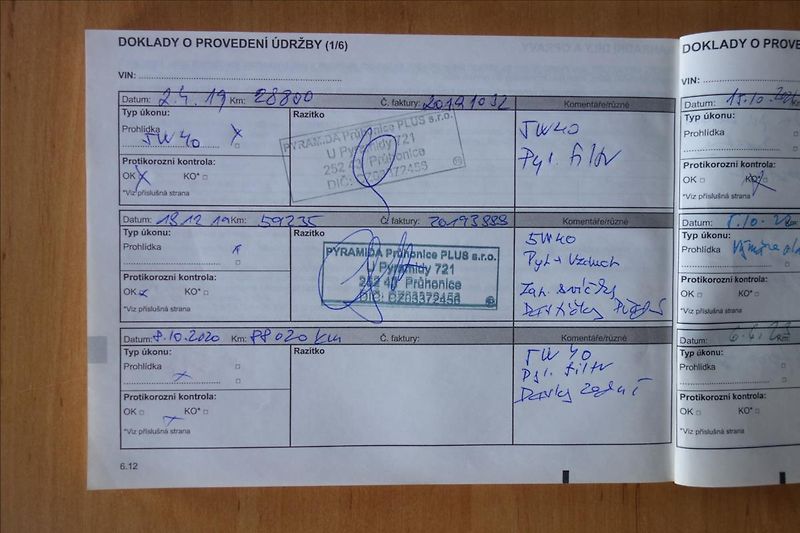 DOKLADY O PROVEDENÍ ÚDRŽBY (1/6)
VIN:
Datum: 2.4.19 Km: 28800 Č. faktury: Komentáře/různé
Typ úkonu: Razítko
Prohlídka 5W40 X
PYRAMIDA Průhonice PLUS s.r.o.
U Pyramidy 721
252 43 Průhonice
DIČ: CZ03372456
5W40
Pyl. filtr
Protikorozní kontrola:
OK X KO*
*Viz příslušná strana
Datum: 18.12.19 Km: 59235 Č. faktury: Komentáře/různé
Typ úkonu: Razítko
Prohlídka x
PYRAMIDA Průhonice PLUS s.r.o.
U Pyramidy 721
252 43 Průhonice
DIČ: CZ03372456
5W40
Pyl + Vzduch
Zap. svíčky
Protikorozní kontrola:
OK x KO*
*Viz příslušná strana
Datum: 8.10.2020 Km: 88020 km Č. faktury: Komentáře/různé
Typ úkonu: Razítko
Prohlídka
x
5W40
Pyl. filtr
Protikorozní kontrola:
OK KO*
x
*Viz příslušná strana
6.12
DOKLADY O PROVE
VIN:
Datum: 15.10.
Typ úkonu:
Prohlídka
Protikorozní kontrola:
OK KO* x
*Viz příslušná strana
Datum:
Typ úkonu:
Prohlídka
Protikorozní kontrola:
OK KO*
*Viz příslušná strana
Datum:
Typ úkonu:
Prohlídka
Protikorozní kontrola:
OK KO*
*Viz příslušná strana